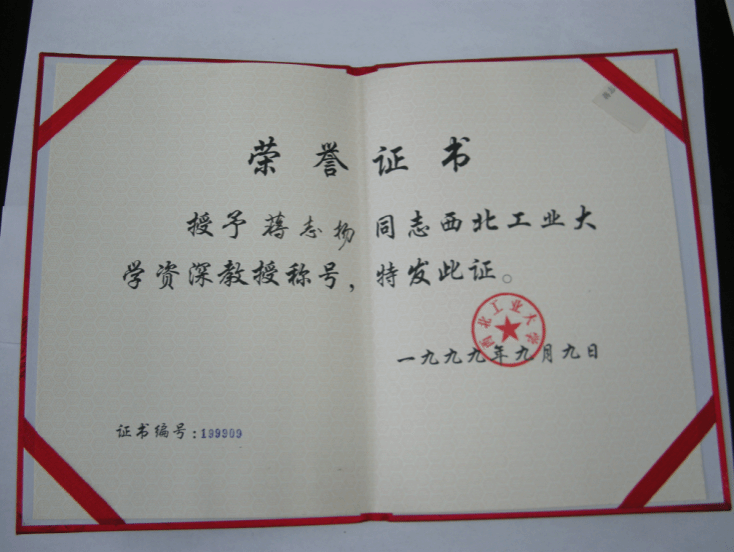 荣誉证书
授予蒋志扬同志西北工业大
学资深教授称号，特发此证。
西北工业大学
一九九九年九月九日
证书编号：199909